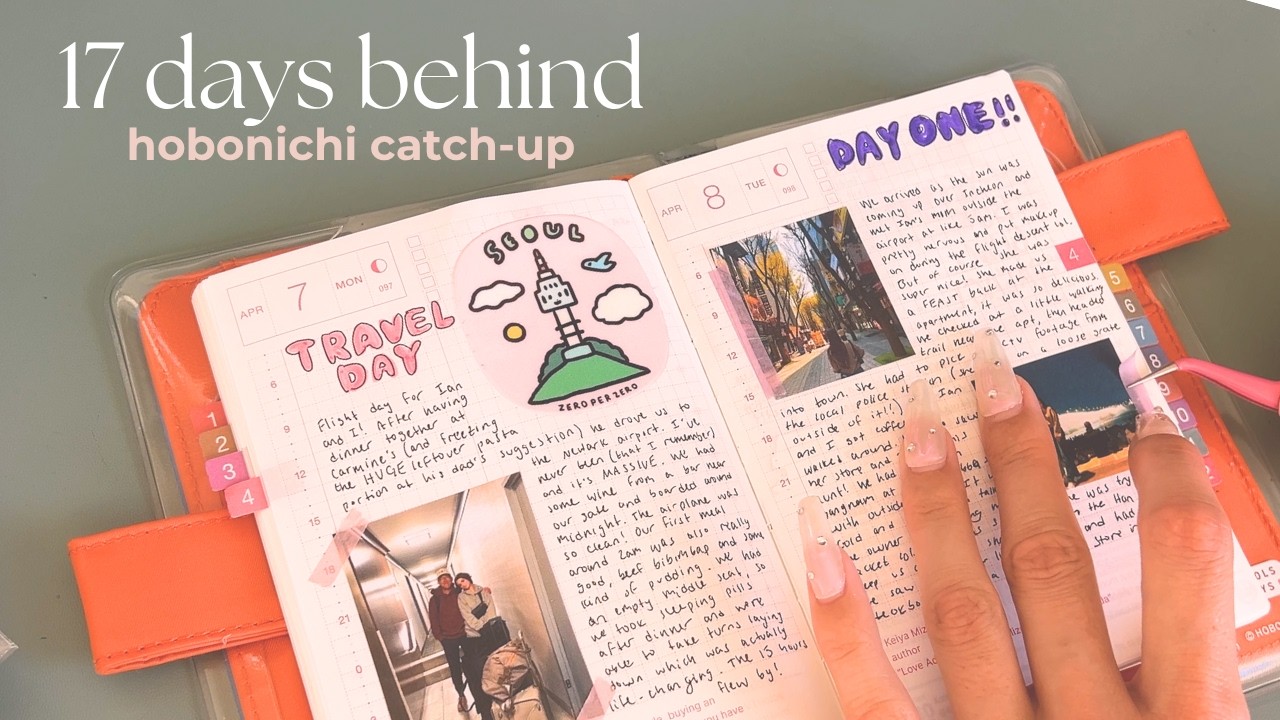 17 days behind
hobonichi catch-up
APR 7 MON 097
TRAVEL
DAY
SEOUL
ZEROPERZERO
Flight day for Ian
and I! After having
dinner together at
Carmine's (and freezing
the HUGE leftover pasta
portion at his dad's suggestion) he drove us to
the Newark airport. I've
never been (that I remember)
and it's MASSIVE. We had
some wine from a bar near
our gate and boarded around
midnight. The airplane was
so clean! Our first meal
around 2am was also really
good, beef bibimbap and some
kind of pudding. We had
an empty middle seat, so
we took sleeping pills
after dinner and were
able to take turns laying
down which was actually
life-changing. The 15 hours
flew by!
buying an
you have
6
9
12
15
18
21
0
3
1
2
3
4
APR 8 TUE 098
DAY ONE!!
We arrived as the sun was
coming up over Incheon and
met Ian's mom outside the
airport at like 5am. I was
pretty nervous and put makeup
on during the flight descent lol.
But of course she was
super nice! She made us
a FEAST back at the
apartment, it was so delicious.
We checked at a little walking
trail near the apt, then headed
into town. She had to pick
CCTV footage from
the local police station (she
on a loose grate
outside it!) Ian
and I got coffee
walked around
her store and
aunt! He had
with outside
gold and
owner
saw
was try
the Han
and had
store in
Keiya Miz
author
"Love Ac
6
9
12
15
18
21
4
5
6
7
8
9
10
2
© HOBO